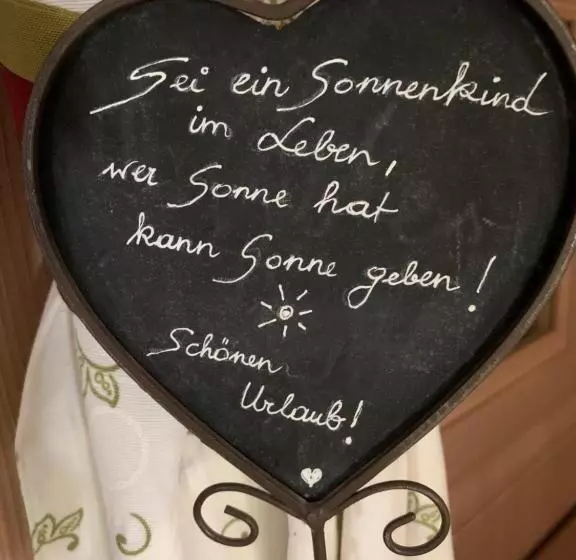 Sei ein Sonnenkind
im Leben,
wer Sonne hat
kann Sonne geben!
Schönen
Urlaub!